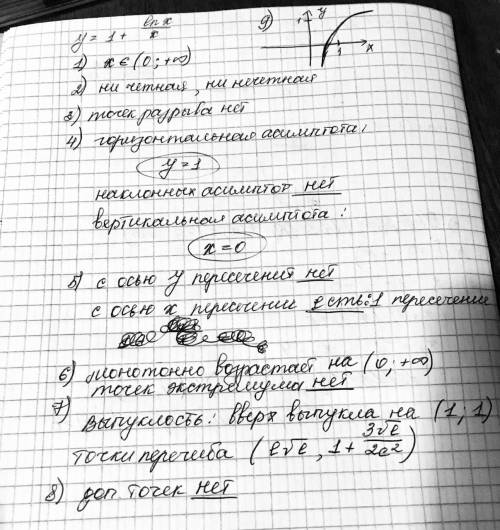 y = 1 + ln x / x
1) x ∈ (0; +∞)
2) ни четная, ни нечетная
3) точек разрыва нет
4) горизонтальная асимптота:
y = 1
наклонных асимптот нет
вертикальная асимптота:
x = 0
5) с осью y пересечений нет
с осью x пересечение есть: 1 пересечение
6) монотонно возрастает на (0; +∞)
точек экстремума нет
7) выпуклость: вверх выпукла на (1; 1)
точки перегиба (e√e, 1 + 3√e / 2e²)
8) доп точек нет
9)
y
1
1
x